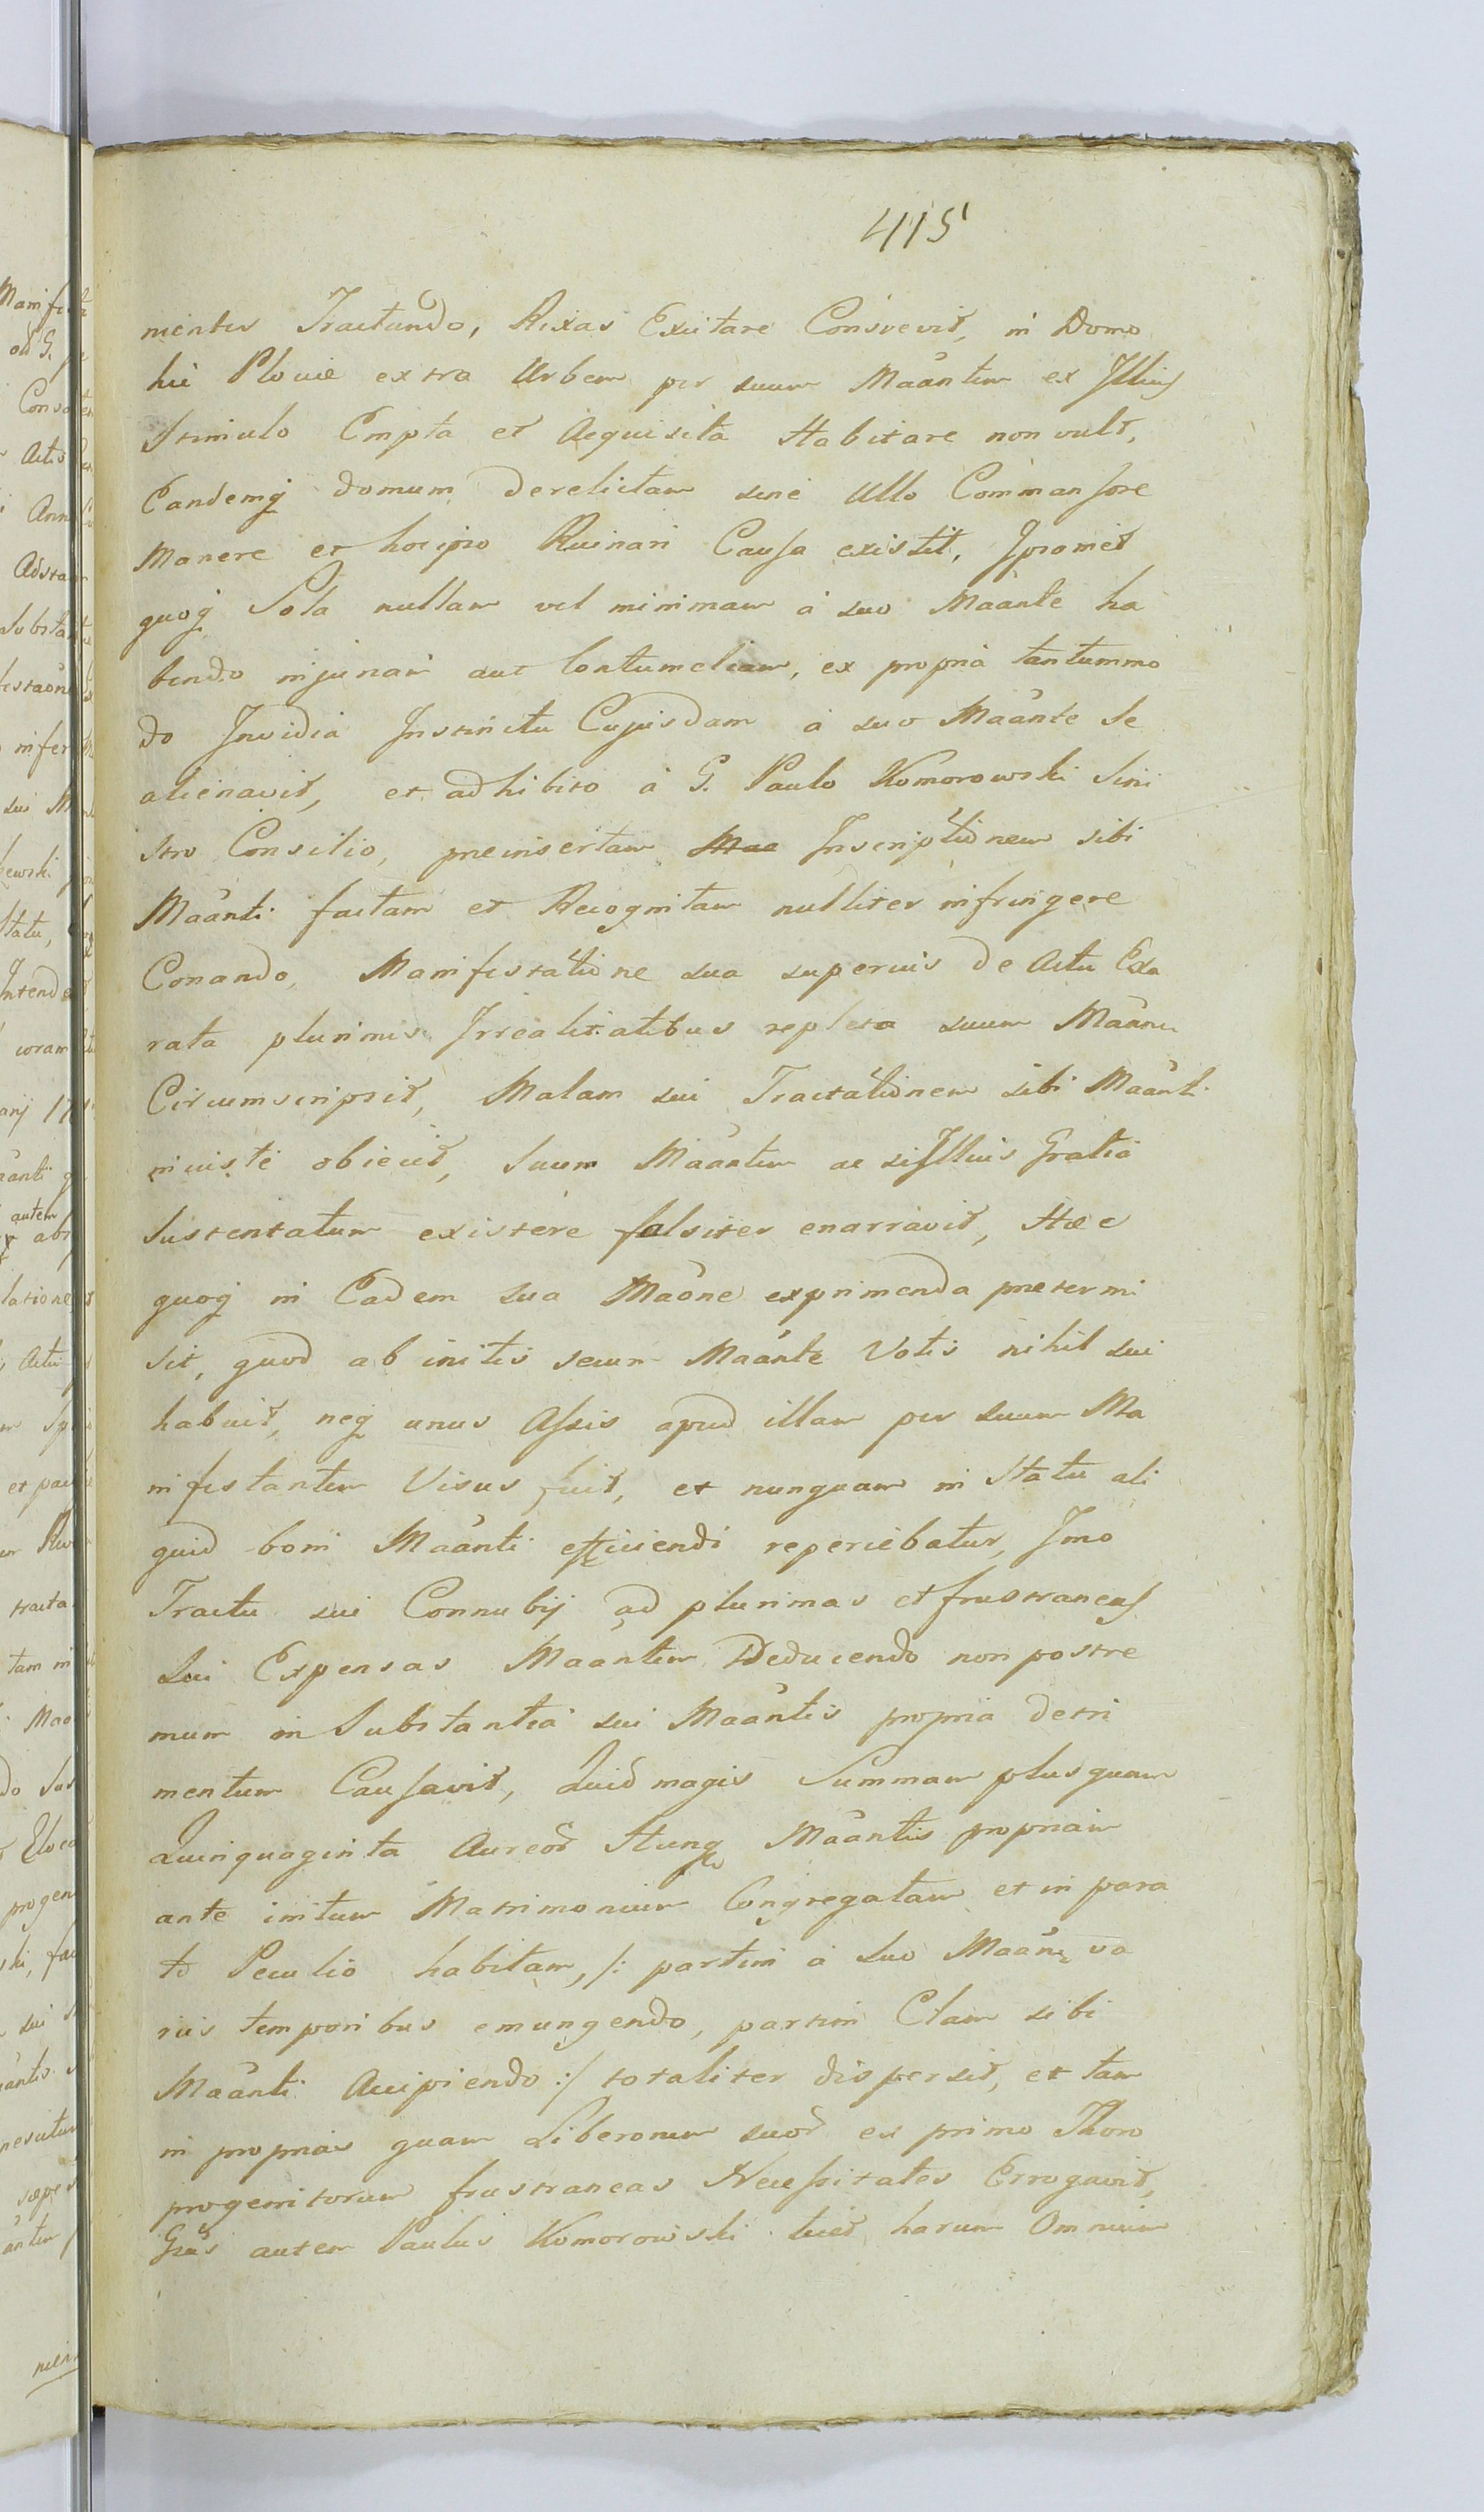 415
nientes Tractando, Rixas Excitare Consvevit, in Domo
hic Plociæ extra Urbem per suum Maantem ex Illius
Stimulo Empta et Acquisita Habitare non vult,
Eandemq domum derelictam sine Ullo Commansore
Manere et hocipso Ruinari Causa existit, Ipsamet
quoq Sola nullam vel minimam à suo Maante ha
bendo injuriam aut Contumeliam, ex propria tantummo
do Invidia Instinctu Cujusdam à suo Maante Se
alienavit, et adhibito à G. Paulo Komorowski Sini
stro Consilio, preinsertam Inscriptionem sibi
Maanti factam et Recognitam nulliter infringere
Conando, Manifestatione sua superius de Actu Exa
rata plurimis Irrealitatibus repleta suum Maan
Circumscripsit, Malam sui Tractationem sibi Maanti
iniuste obiecit, Suum Maantem ac si Illius Gratia
Sustentatum existere falsiter enarravit, Hæc
quoq in Eadem sua Maone exprimenda pretermi
sit, quod ab initis secum Maante Votis nihil sui
habuit, neq unus Assis apud illam per suum Ma
nifestantem Visus fuit, et nunquam in Statu ali
quid boni Maanti efficiendi reperiebatur, Imo
Tractu sui Connubij ad plurimas et frustraneas
Sui Expensas Maantem Deducendo non postre
mum in Substantia sui Maantis propria detri
mentum Causavit, Quid magis Summam plusquam
Quinquaginta Aureor Hung Maantis propriam
ante initum Matrimonium Congregatam et in para
to Peculio habitam, /: partim à suo Maan va
riis temporibus emungendo, partim Clam sibi
Maanti Accipiendo :/ totaliter dispersit, et tam
in proprias quam Liberorum suor ex primo Thoro
progenitorum frustraneas Necessitates Errogavit,
Gsus autem Paulus Komorowski licet harum Omnium